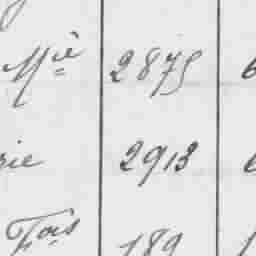 Mie 2875 6
rie 2913 6
Fois 189